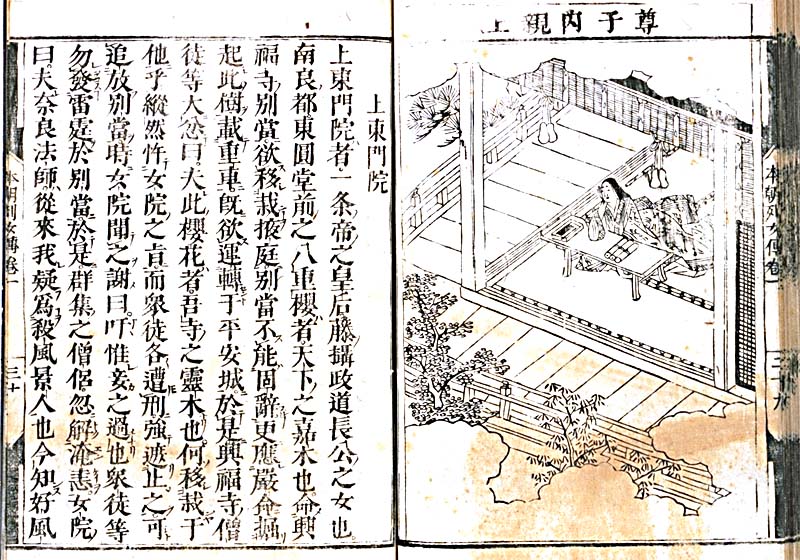 尊子内親王
本朝列女傳卷一
三十九
上東門院
上東門院者一条帝之皇后藤攝政道長公之女也
南良都東圓堂前之八重櫻者天下之嘉木也命興
福寺別當欲移栽掖庭別當不能固辭更應嚴命掘
起此樹載重車既欲運轉于平安城於是興福寺僧
徒等大忿曰夫此櫻花者吾寺之靈木也何移栽于
他乎縱然忤女院之旨而衆徒各遭刑強遮止之可
追放別當時女院聞之謝曰吁惟妾之過也衆徒等
勿發雷霆於別當於是群集之僧侶忽解恚女院
曰夫奈良法師從來我疑爲殺風景人也今知好風
本朝列女傳卷一
三十